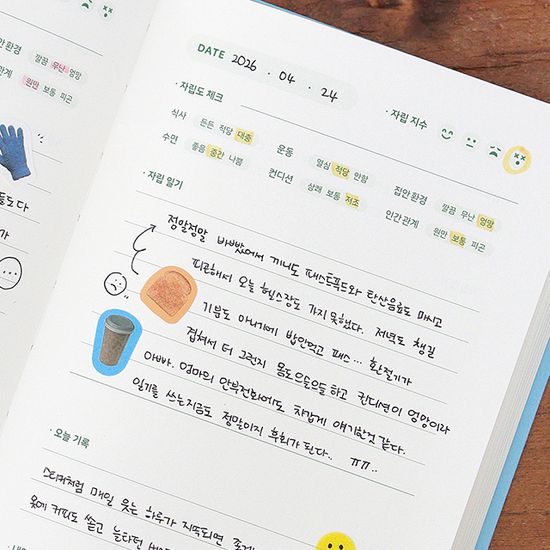 환경 깔끔 무난 엉망
관계 원만 보통 피곤
DATE 2026 . 04 . 24
· 자립도 체크
· 자립 지수
식사 든든 적당 대충
운동 열심 적당 안함
집안 환경 깔끔 무난 엉망
수면 좋음 중간 나쁨
컨디션 상쾌 보통 저조
인간 관계 원만 보통 피곤
· 자립 일기
정말정말 바빴어서 끼니도 패스트푸드와 탄산음료도 마시고
피곤해서 오늘 헬스장도 가지 못했다. 저녁도 챙길
기분도 아니기에 밥안먹고 패스... 환절기가
겹쳐서 더 그런지 몸도 으슬으슬하고 컨디션이 엉망이라
아빠, 엄마의 안부전화에도 차갑게 얘기한것 같다.
일기를 쓰는지금도 정말이지 후회가 된다.. ㅠㅠ..
· 오늘 기록
스티커처럼 매일 웃는 하루가 지속되면 좋겠
옷에 커피도 쏟고 놀라던